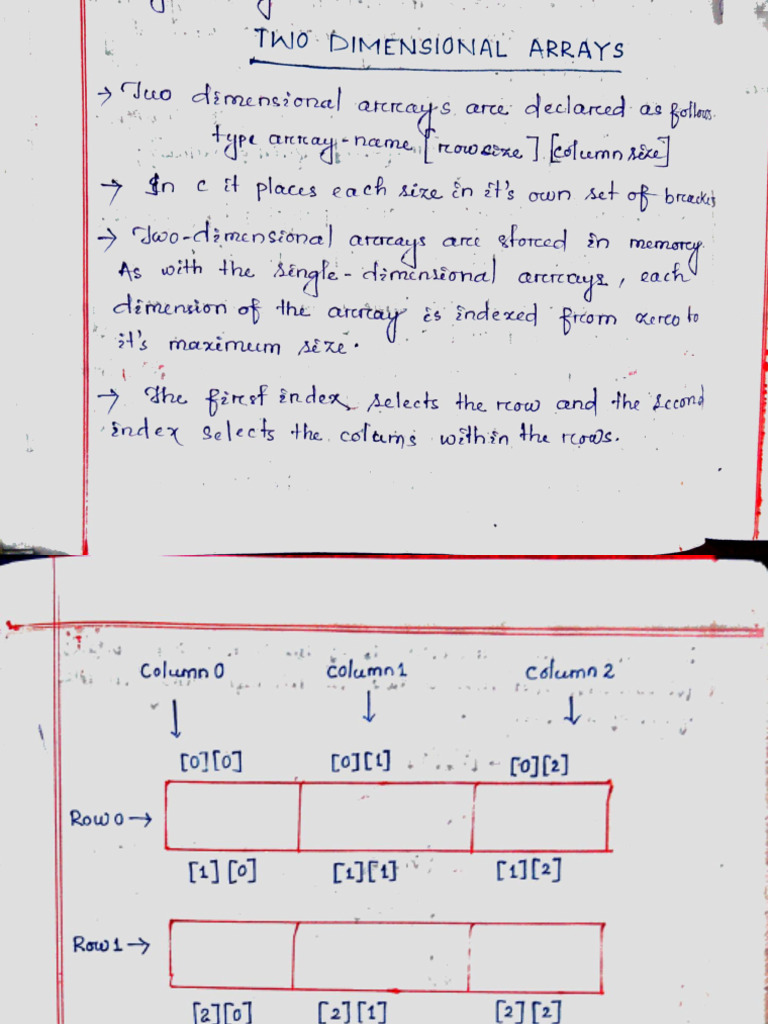 TWO DIMENSIONAL ARRAYS
→ Two dimensional arrays are declared as follows.
type array-name [row size] [column size]
→ In c it places each size in it's own set of bracket
→ Two-dimensional arrays are stored in memory.
As with the single-dimensional arrays, each
dimension of the array is indexed from zero to
it's maximum size.
→ The first index, selects the row and the second
index selects the colums within the rows.
Column 0 Column 1 Column 2
↓ ↓ ↓
[0][0] [0][1] [0][2]
Row 0 →
[1][0] [1][1] [1][2]
Row 1 →
[2][0] [2][1] [2][2]